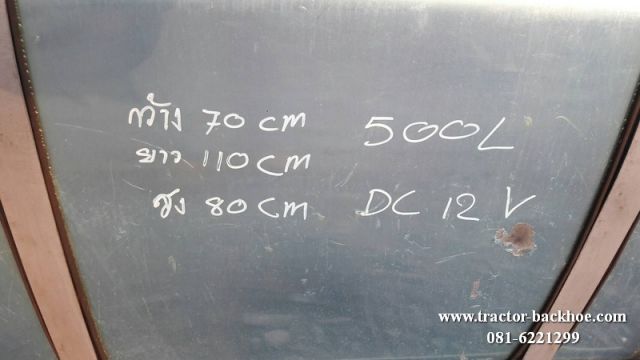 กว้าง 70 cm
ยาว 110 cm
สูง 80 cm
500L
DC 12 V
www.tractor-backhoe.com
081-6221299